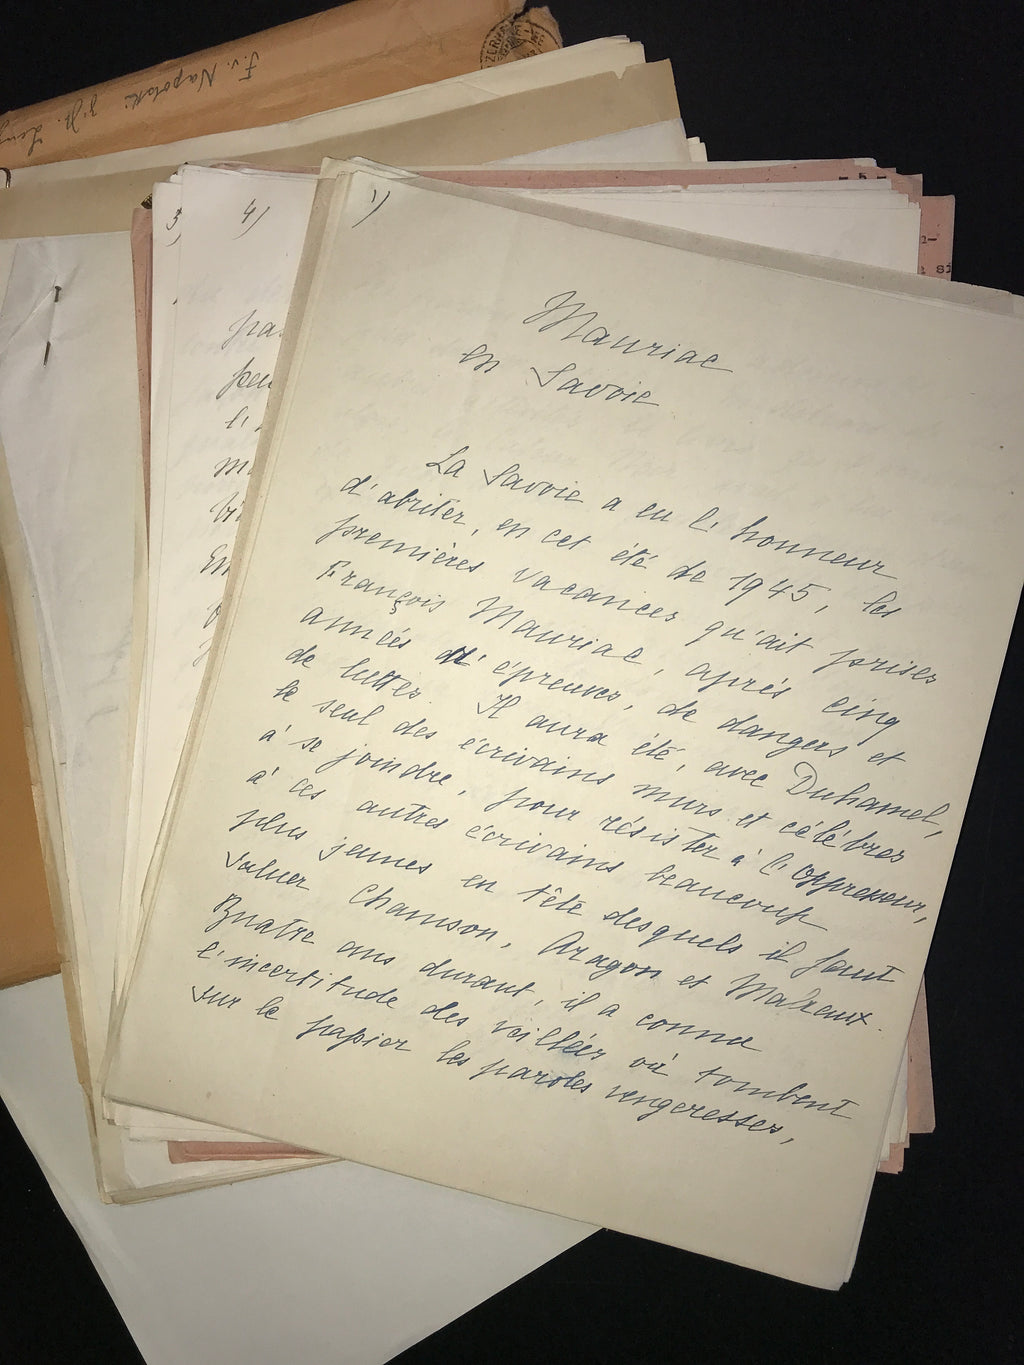 F. v. Napolski
1)
Mauriac
en Savoie
La Savoie a eu l'honneur
d'abriter, en cet été de 1945, les
premières vacances qu'ait prises
François Mauriac, après cinq
années d'épreuves, de dangers et
de luttes. Il aura été, avec Duhamel,
le seul des écrivains murs et célèbres
à se joindre, pour résister à l'oppresseur,
à ces autres écrivains beaucoup
plus jeunes en tête desquels il faut
saluer Chamson, Aragon et Malraux.
Quatre ans durant, il a connu
l'incertitude des veillées où tombent
sur le papier les paroles vengeresses,
3)
4)
pa
peu
l'
m
bi
En
- 5 -
si